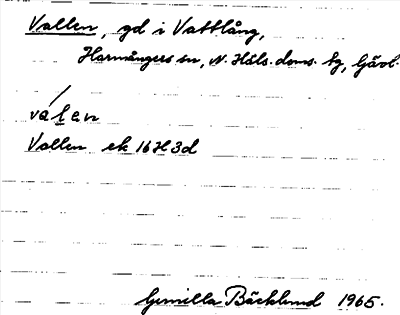 Vallen, gd i Vattlång,
Harmångers sn, N. Häls. doms. tg, Gävl.
va´len
Vallen ek 16H3d
Gunilla Bäcklund 1965.